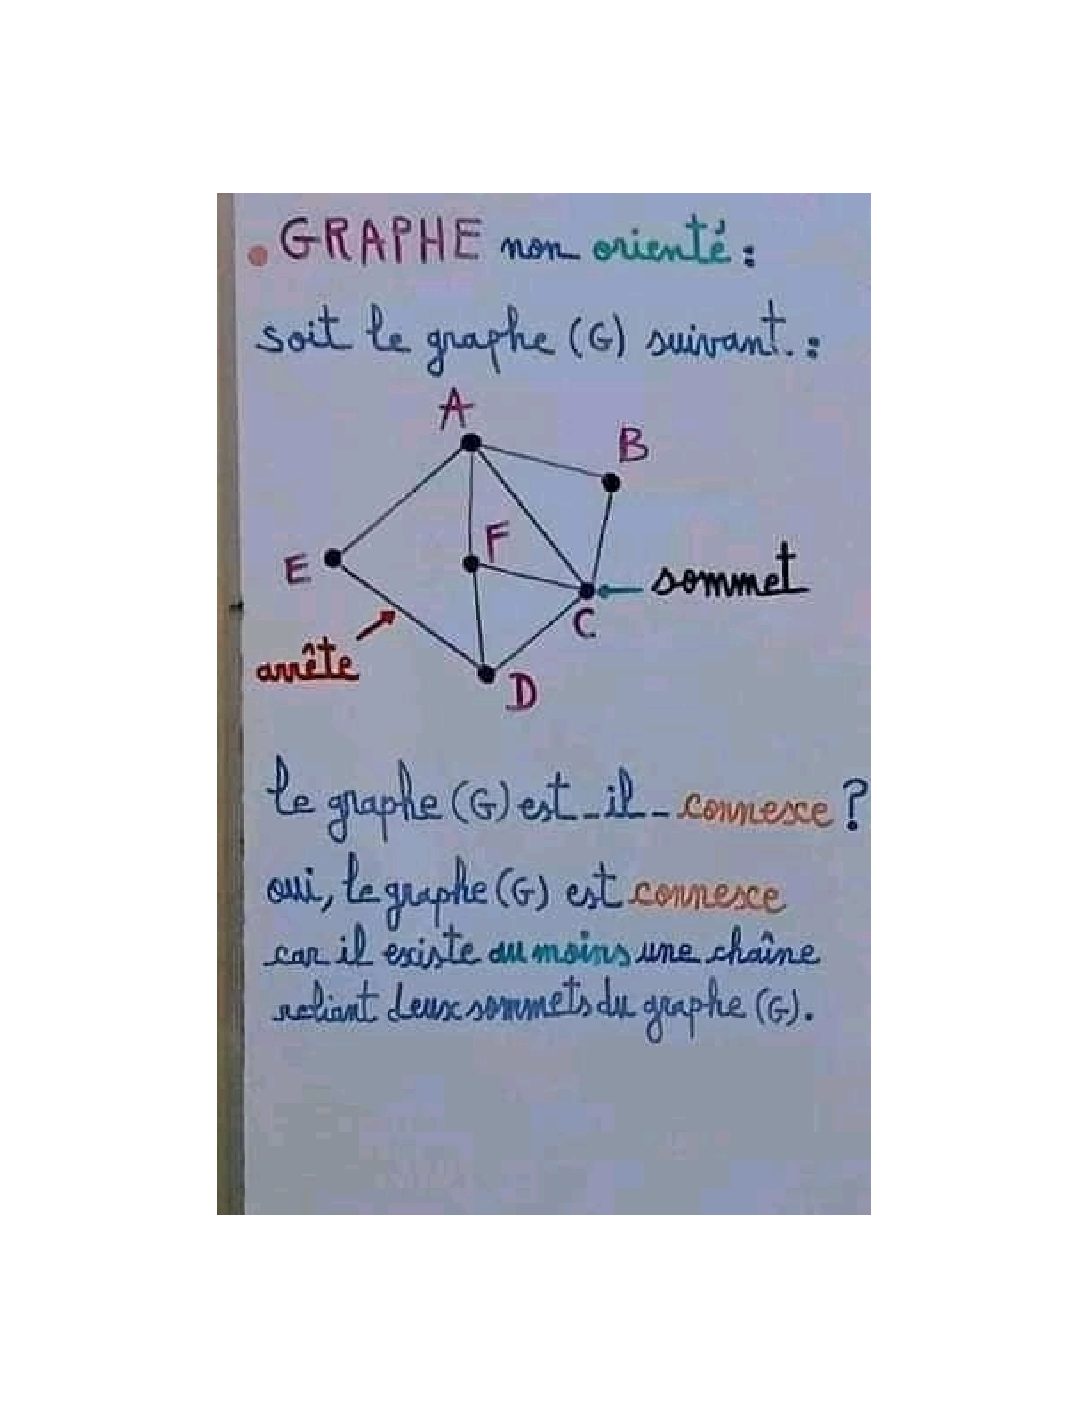 GRAPHE non orienté :
soit le graphe (G) suivant. :
A
B
F
E
sommet
C
arrête
D
le graphe (G) est-il-connexe ?
oui, le graphe (G) est connexe
car il existe au moins une chaîne
reliant deux sommets du graphe (G).